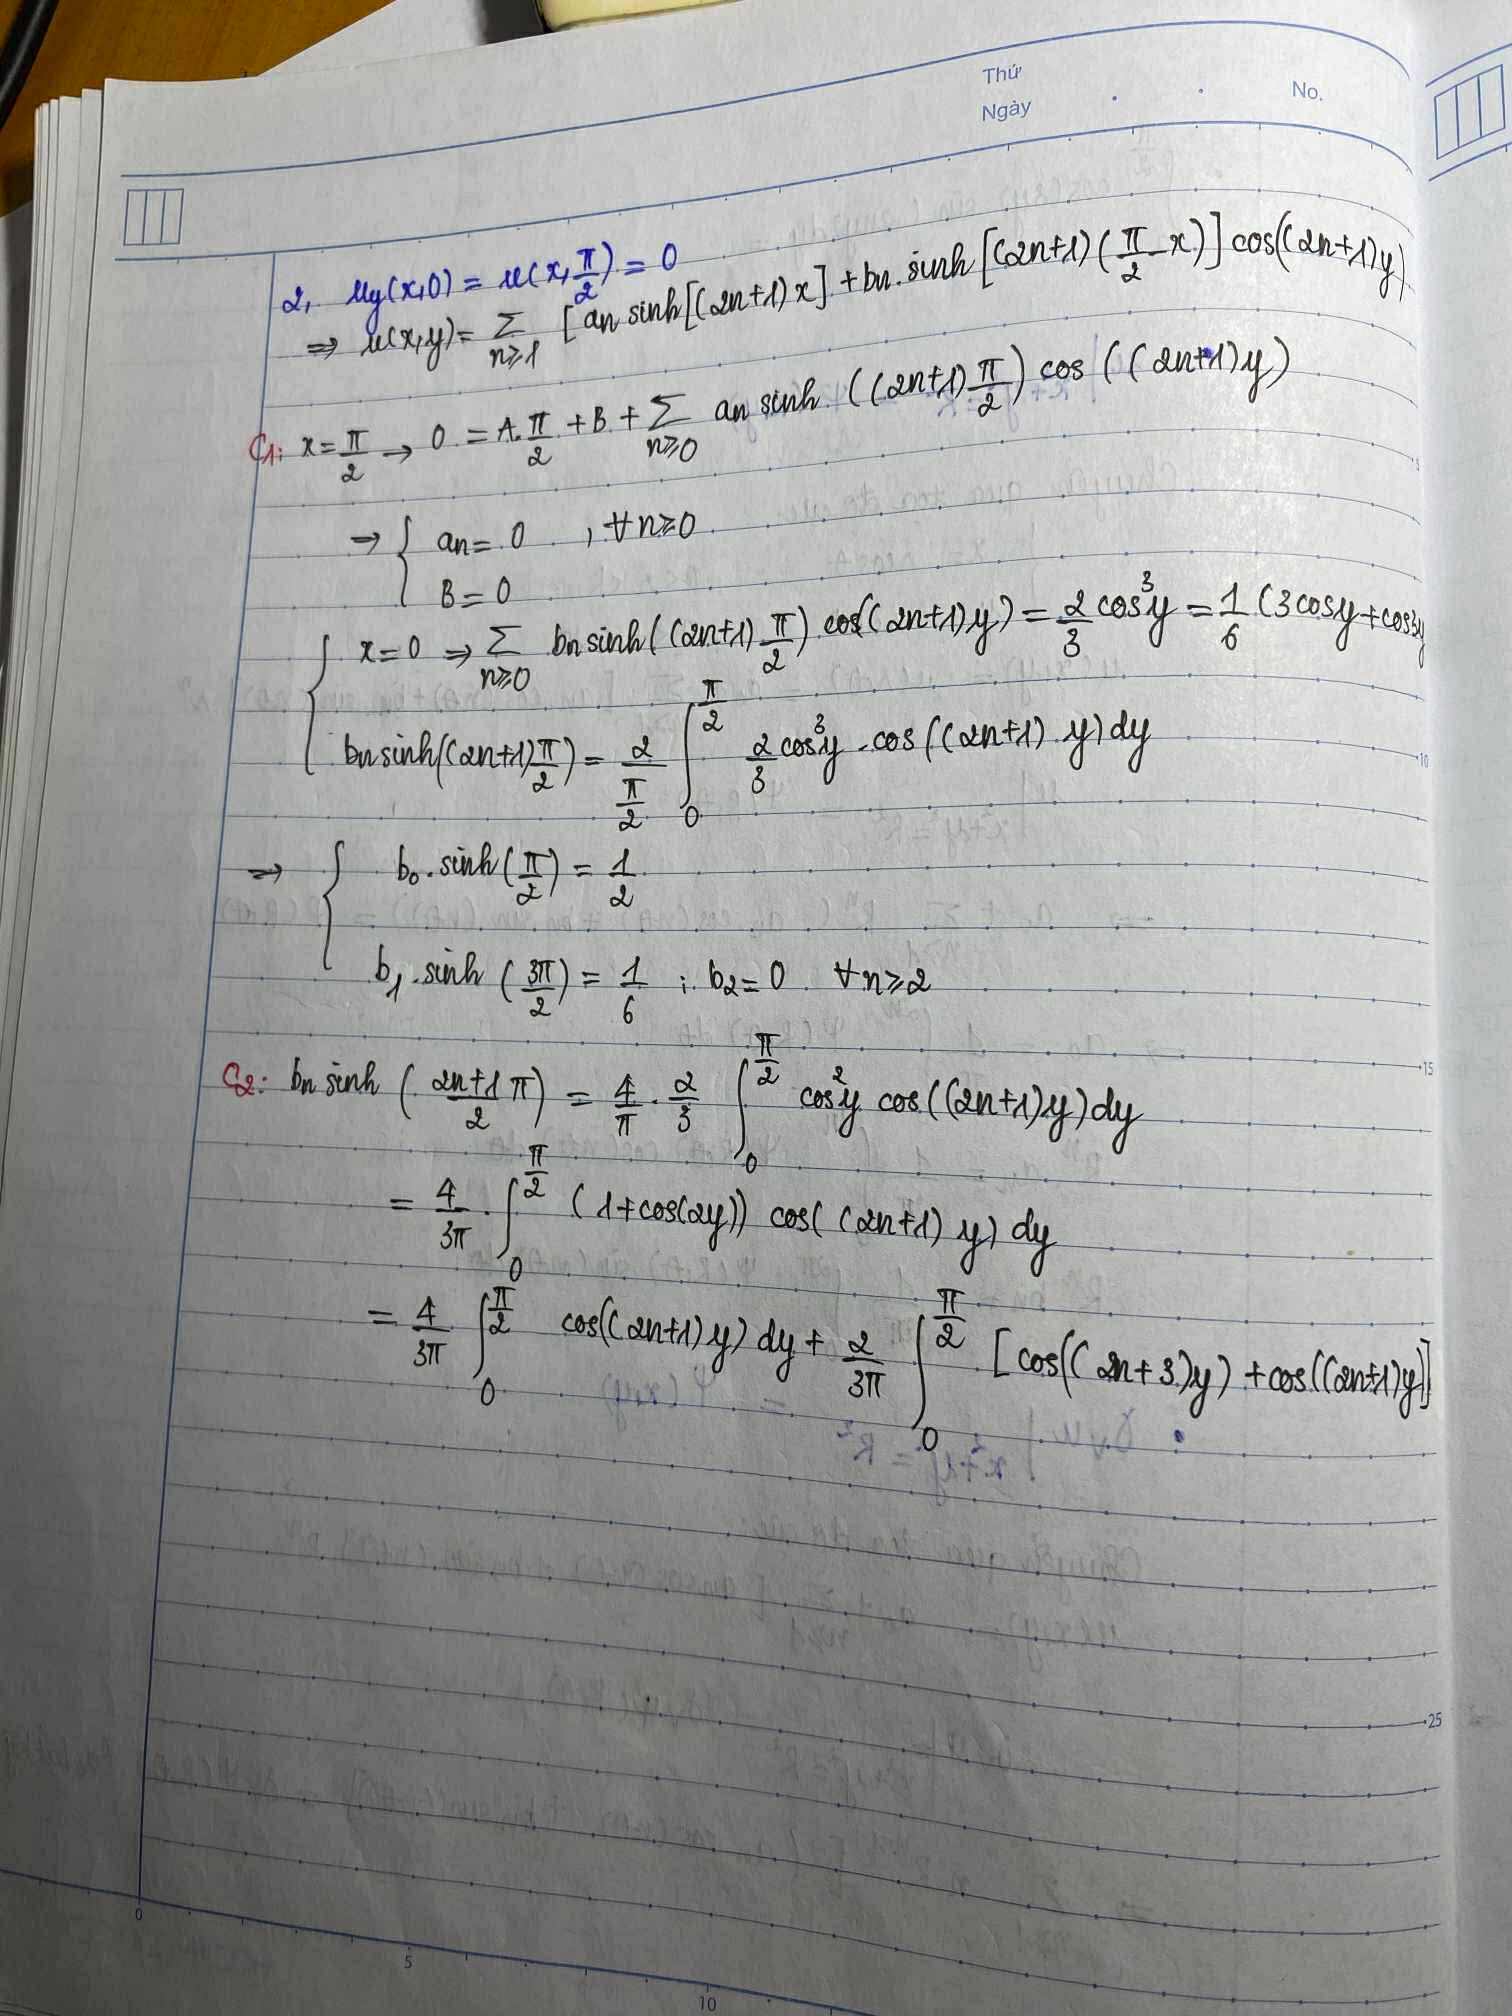 Thứ
Ngày
No.
2, uy(x,0) = u(x, π/2) = 0
⇒ u(x,y) = Σ n≥1 [an sinh[(2n+1)x] + bn.sinh[(2n+1)(π/2 - x)] cos((2n+1)y)
C1: x = π/2 → 0 = A.π/2 + B + Σ n≥0 an sinh ((2n+1)π/2) cos ((2n+1)y)
→ { an = 0 , ∀n≥0
B = 0
{ x=0 ⇒ Σ n≥0 bn sinh((2n+1)π/2) cos((2n+1)y) = 2/3 cos³y = 1/6 (3cosy+cos3y
bn sinh((2n+1)π/2) = 2/(π/2) ∫₀^(π/2) 2/3 cos³y.cos((2n+1) y) dy
⇒ { b₀.sinh(π/2) = 1/2
b₁.sinh (3π/2) = 1/6 ; b₂=0 ∀n≥2
C2: bn sinh ((2n+1)/2 π) = 4/π . 2/3 ∫₀^(π/2) cos²y cos((2n+1)y) dy
= 4/3π . ∫₀^(π/2) (1+cos(2y)) cos((2n+1) y) dy
= 4/3π ∫₀^(π/2) cos((2n+1)y) dy + 2/3π ∫₀^(π/2) [cos((2n+3)y) + cos((2n+1)y)]
5
10
15
25
0
5
10